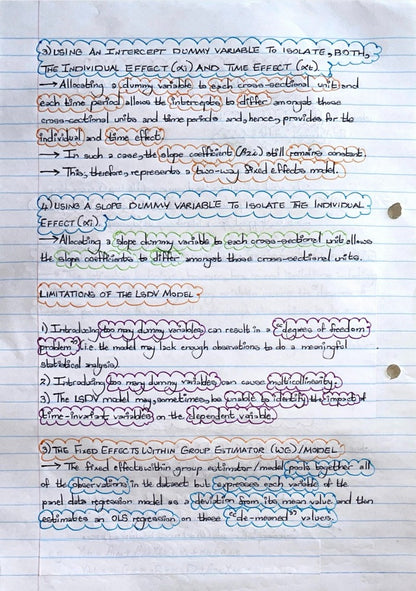 3) USING AN INTERCEPT DUMMY VARIABLE TO ISOLATE, BOTH,
THE INDIVIDUAL EFFECT (αi) AND TIME EFFECT (αt).
→ Allocating a dummy variable to each cross-sectional unit and
each time period allows the intercepts to differ amongst those
cross-sectional units and time periods and, hence, provides for the
individual and time effect.
→ In such a case, the slope coefficient (β2it) still remains constant.
→ This, therefore, represents a two-way fixed effects model.
4) USING A SLOPE DUMMY VARIABLE TO ISOLATE THE INDIVIDUAL
EFFECT (αi).
→ Allocating a slope dummy variable to each cross-sectional unit allows
the slope coefficients to differ amongst those cross-sectional units.
LIMITATIONS OF THE LSDV MODEL:
1) Introducing too many dummy variables can result in a "degrees of freedom
problem" (i.e. the model may lack enough observations to do a meaningful
statistical analysis)
2) Introducing too many dummy variables can cause multicollinearity.
3) The LSDV model may, sometimes, be unable to identify the impact of
time-invariant variables on the dependent variable.
3) THE FIXED EFFECTS WITHIN GROUP ESTIMATOR (WG)/MODEL
→ The fixed effects within group estimator/model pools together all
of the observations in the dataset but expresses each variable of the
panel data regression model as a deviation from its mean value and then
estimates an OLS regression on those "de-meaned" values.